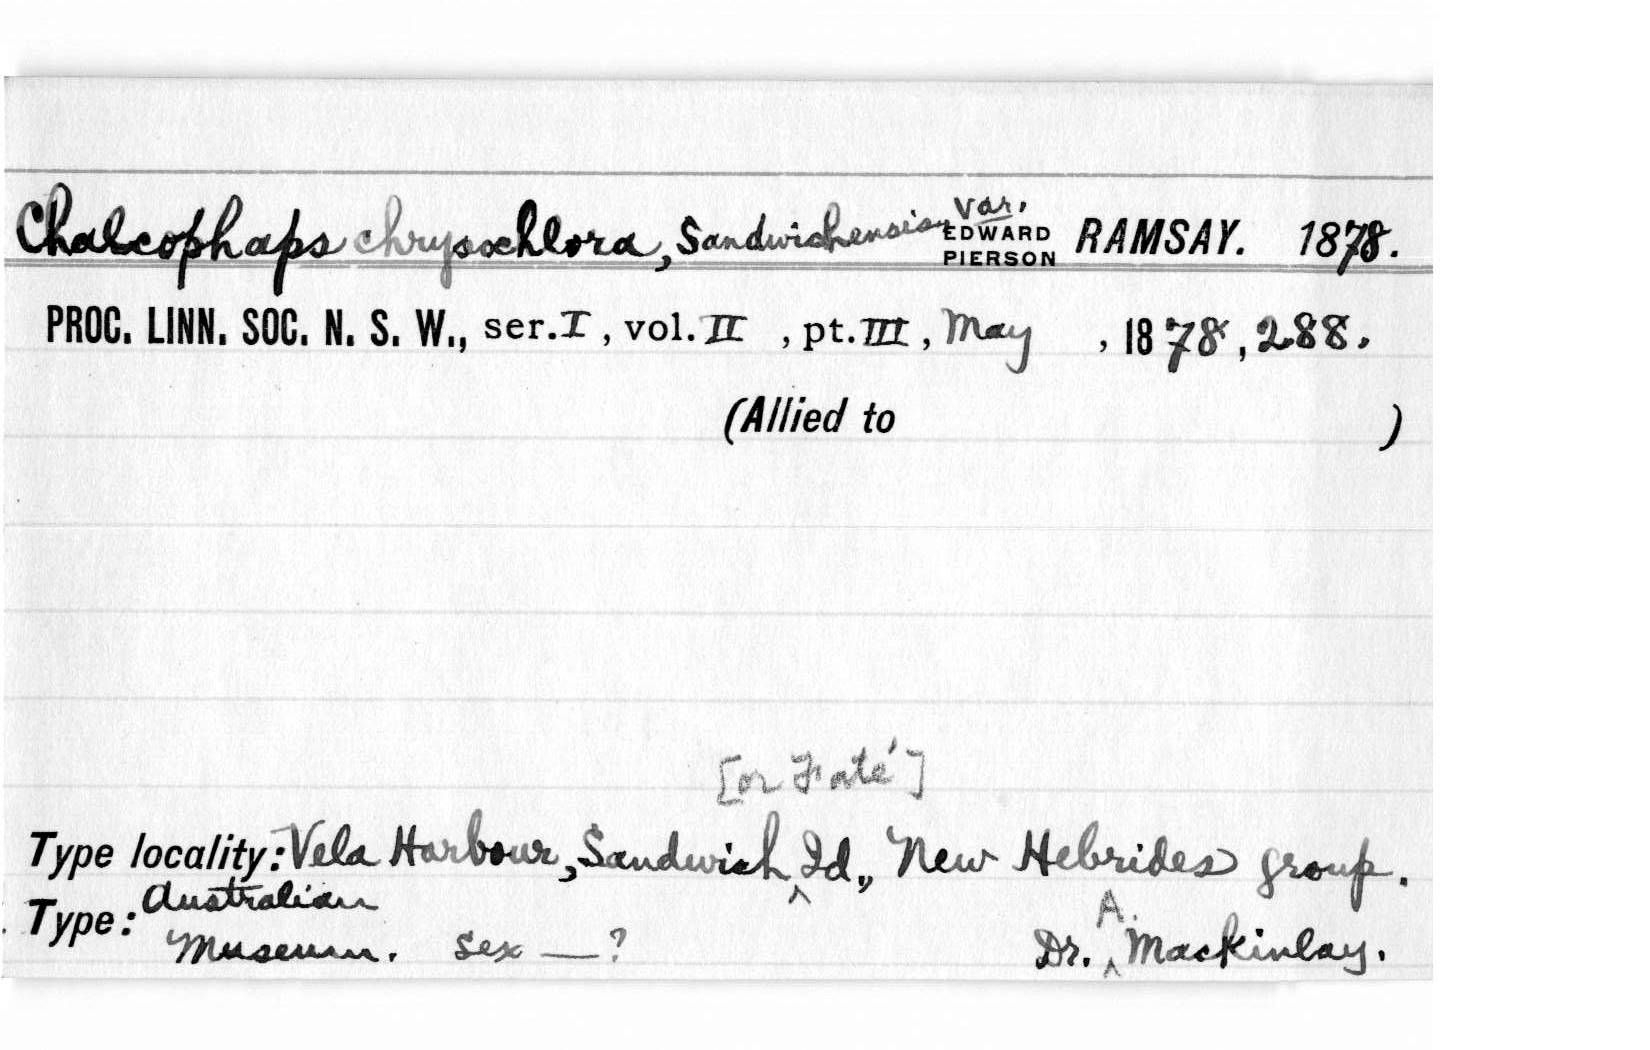 Chalcophaps chrysochlora, Sandwichensis, var. EDWARD PIERSON RAMSAY. 1878.
PROC. LINN. SOC. N. S. W., ser. I, vol. II, pt. III, May, 1878, 288.
(Allied to )
[or Faté]
Type locality: Vela Harbour, Sandwich ^ Id., New Hebrides group.
Type: Australian
Museum. sex — ? Dr. ^ A. Mackinlay.